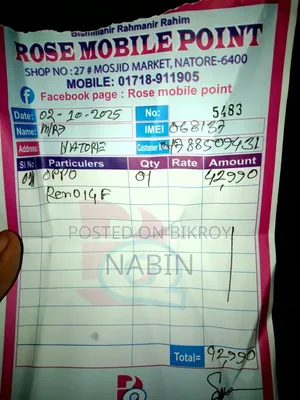 Bismillahir Rahmanir Rahim
ROSE MOBILE POINT
SHOP NO : 27 # MOSJID MARKET, NATORE-6400
MOBILE: 01718-911905
f Facebook page : Rose mobile point
Date: 02-10-2025 No: 5483
Name: IMEI 068187
Address: NATORE Customer 88509431
Sl No Particulars Qty Rate Amount
01 OPPO 01 42,990
Reno14F
POSTED ON BIKROY
NABIN
Total= 42,990